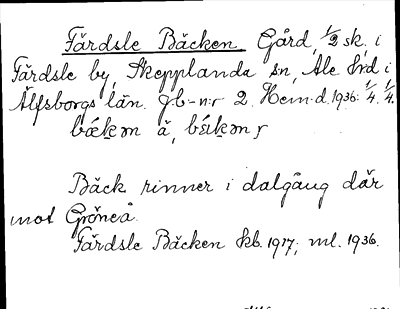 Färdsle Bäcken. Gård, 1/2 sk, i
Färdsle by, Skepplanda sn, Ale Hrd i
Älfsborgs län. J.b-n:r 2. Hem.d. 1936: 1/4. 1/4.
Bäck rinner i dalgång där
mot Gröneå.
Färdsle Bäcken kb. 1917; ml. 1936.